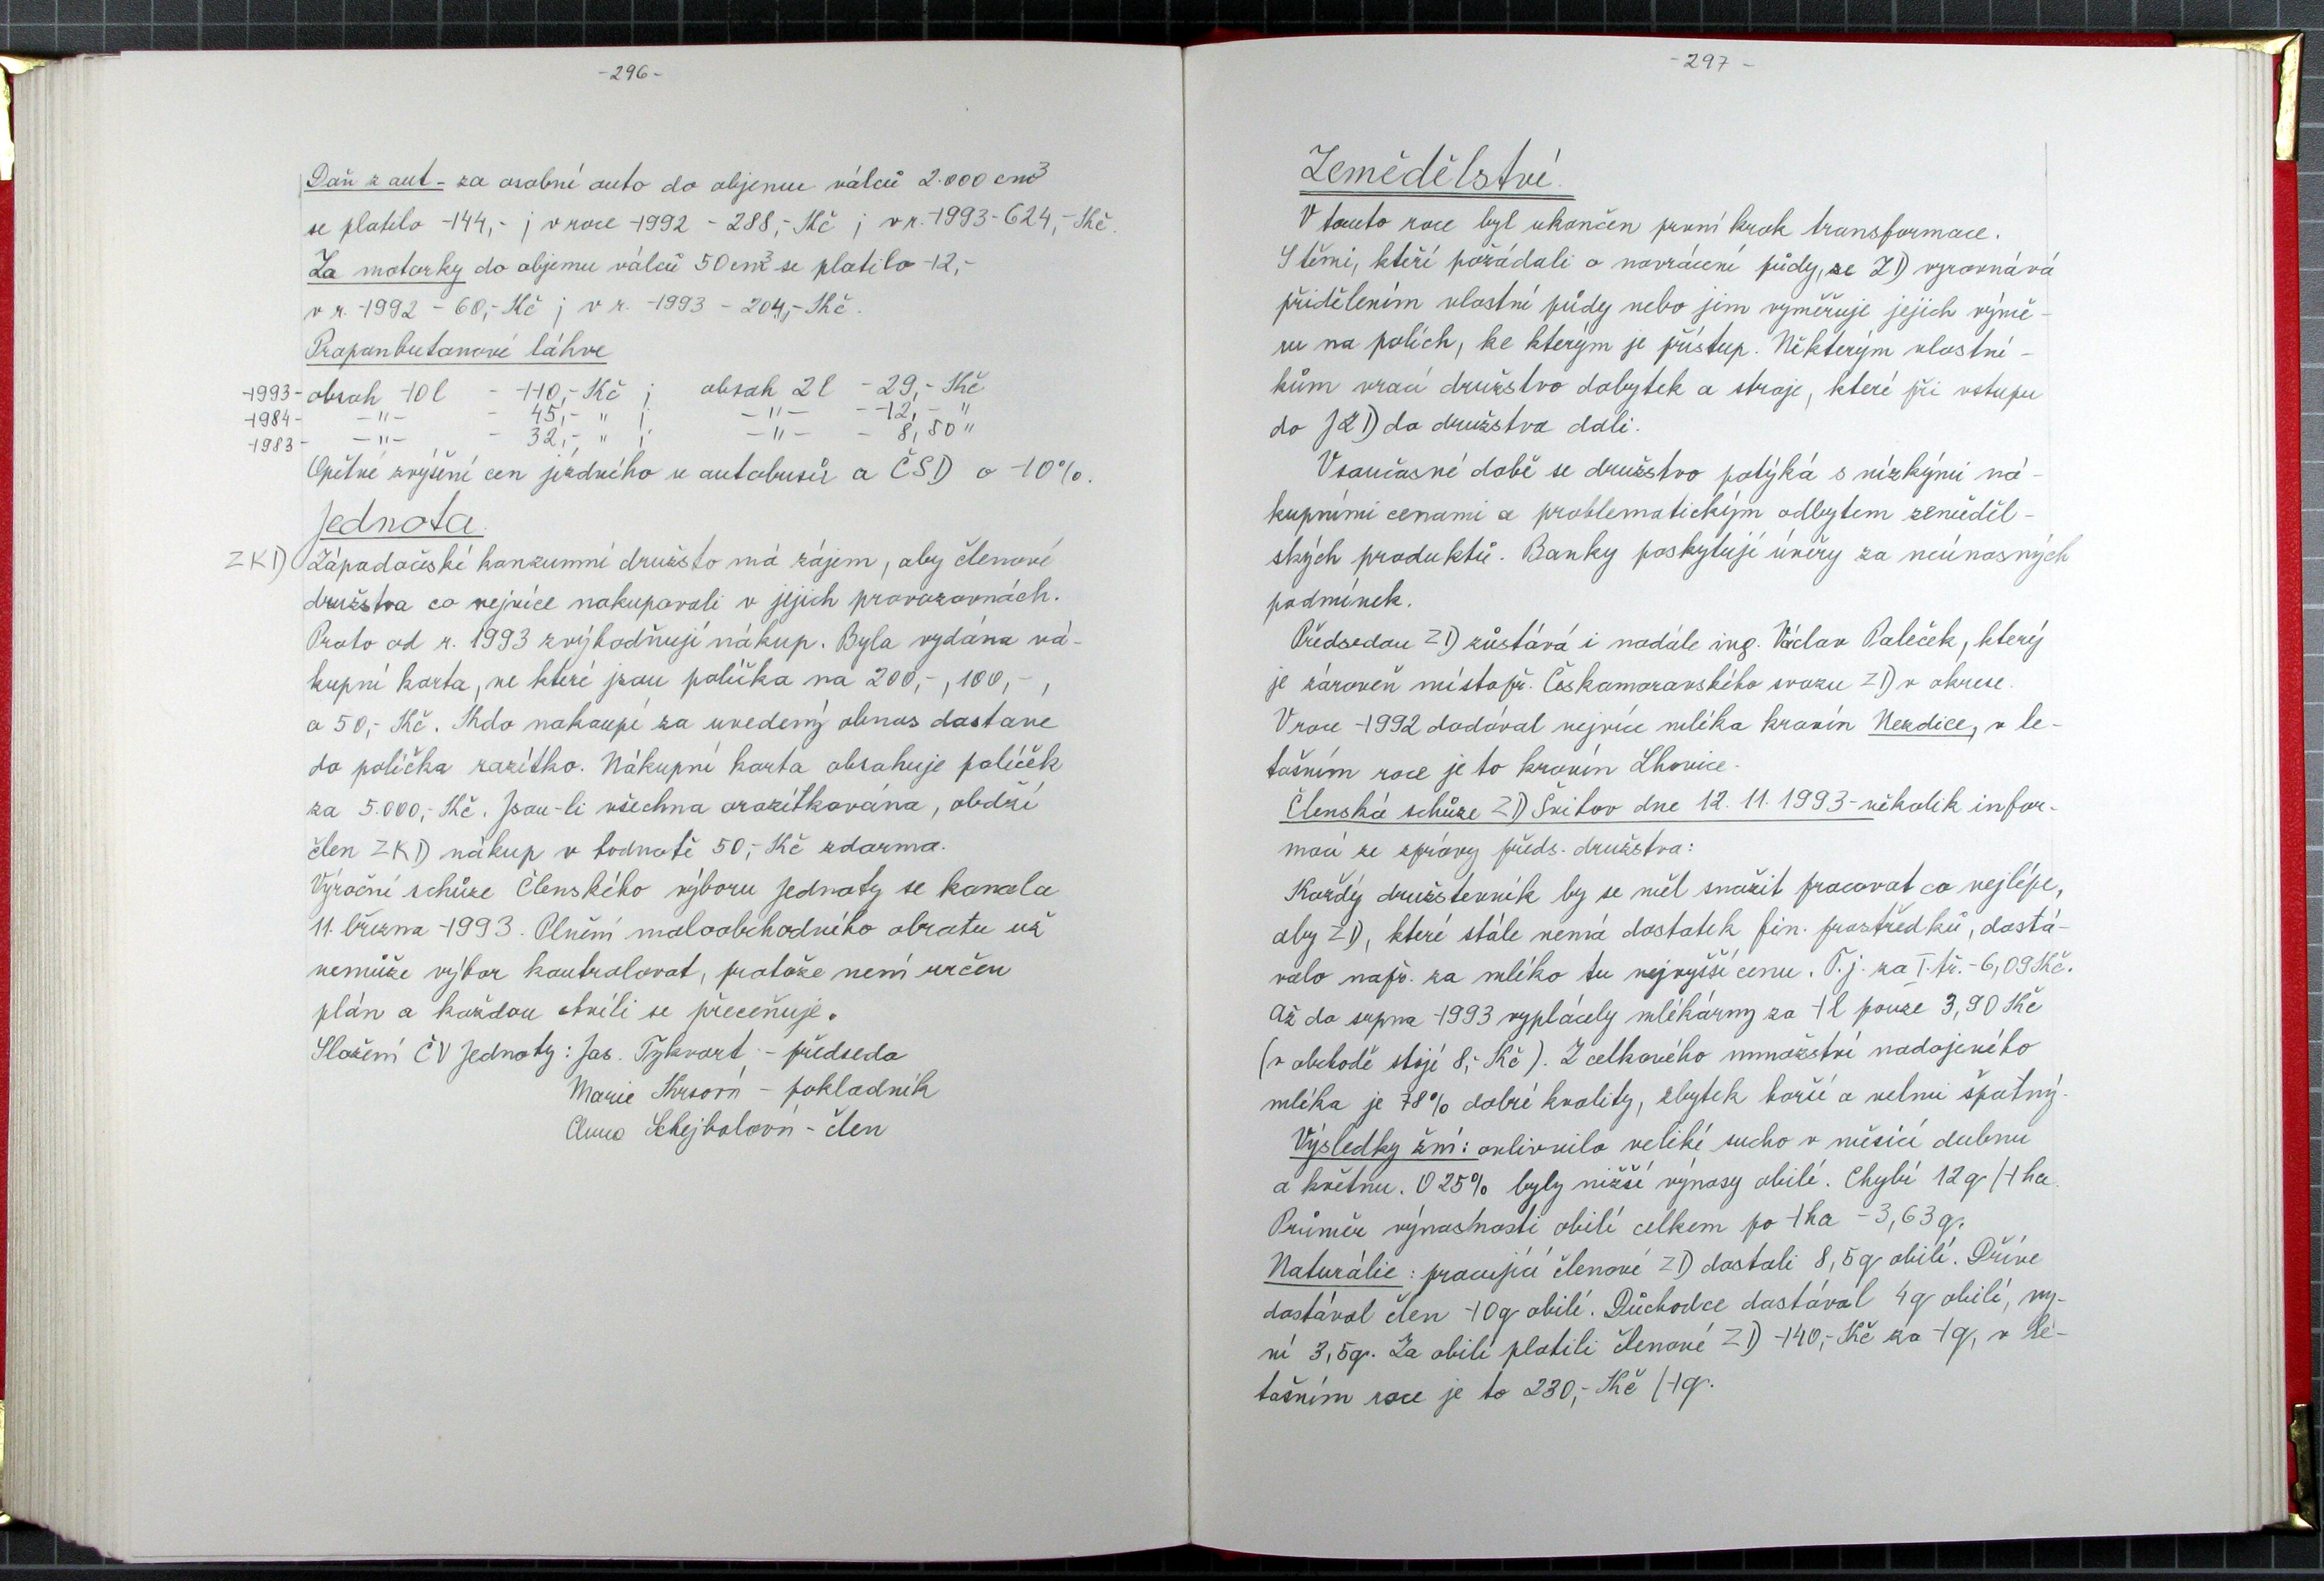 -296-
Daň z aut - za osobní auto do objemu válců 2.000 cm³
se platilo 144,- ; v roce 1992 - 288,- Kč ; v r. 1993 - 624,- Kč.
Za motorky do objemu válců 50 cm³ se platilo 12,-
v r. 1992 - 60,- Kč ; v r. 1993 - 204,- Kč.
Propanbutanové láhve
1993 - obsah 10 l - 110,- Kč ; obsah 2 l - 29,- Kč
1984 - -"- - 45,- " ; -"- - 12,- "
1983 - -"- - 32,- " ; -"- - 8,50 "
Opětné zvýšení cen jízdného u autobusů a ČSD o 10%.
Jednota.
ZKD Západočeské konzumní družsto má zájem, aby členové
družstva co nejvíce nakupovali v jejich provozovnách.
Proto od r. 1993 zvýhodňují nákup. Byla vydána ná-
kupní karta, ve které jsou políčka na 200,-, 100,-,
a 50,- Kč. Kdo nakoupí za uvedený obnos dostane
do políčka razítko. Nákupní karta obsahuje políček
za 5.000,- Kč. Jsou-li všechna orazítkována, obdrží
člen ZKD nákup v hodnotě 50,- Kč zdarma.
Výroční schůze Členského výboru Jednoty se konala
11. března 1993. Plnění maloobchodního obratu už
nemůže výbor kontrolovat, protože není určen
plán a každou chvíli se přeceňuje.
Složení ČV Jednoty: Jos. Tykvart - předseda
Marie Krsová - pokladník
Anna Schejbalová - člen
-297-
Zemědělství.
V tomto roce byl ukončen první krok transformace.
S těmi, kteří požádali o navrácení půdy, se ZD vyrovnává
přidělením vlastní půdy nebo jim vyměřuje jejich výmě-
ru na polích, ke kterým je přístup. Některým vlastní-
kům vrací družstvo dobytek a stroje, které při vstupu
do JZD do družstva dali.
V současné době se družstvo potýká s nízkými ná-
kupními cenami a problematickým odbytem zeměděl-
ských produktů. Banky poskytují úvěry za neúnosných
podmínek.
Předsedou ZD zůstává i nadále ing. Václav Paleček, který
je zároveň místopř. Českomoravského svazu ZD v okrese.
V roce 1992 dodával nejvíce mléka kravín Nezdice, v le-
tošním roce je to kravín Lhovice.
Členská schůze ZD Švihov dne 12. 11. 1993 - několik infor-
mací ze zprávy předs. družstva:
Každý družstevník by se měl snažit pracovat co nejlépe,
aby ZD, které stále nemá dostatek fin. prostředků, dostá-
valo např. za mléko tu nejvyšší cenu. T.j. za I. tř. - 6,09 Kč.
Až do srpna 1993 vyplácely mlékárny za 1 l pouze 3,90 Kč
(v obchodě stojí 8,- Kč). Z celkového množství nadojeného
mléka je 78% dobré kvality, zbytek horší a velmi špatný.
Výsledky žní: ovlivnilo veliké sucho v měsíci dubnu
a květnu. O 25% byly nižší výnosy obilí. Chybí 12 q / 1 ha.
Průměr výnosnosti obilí celkem po 1 ha - 3,63 q.
Naturálie: pracující členové ZD dostali 8,5 q obilí. Dříve
dostával člen 10 q obilí. Důchodce dostával 4 q obilí, ny-
ní 3,5 q. Za obilí platili členové ZD 140,- Kč za 1 q, v le-
tošním roce je to 230,- Kč / 1 q.